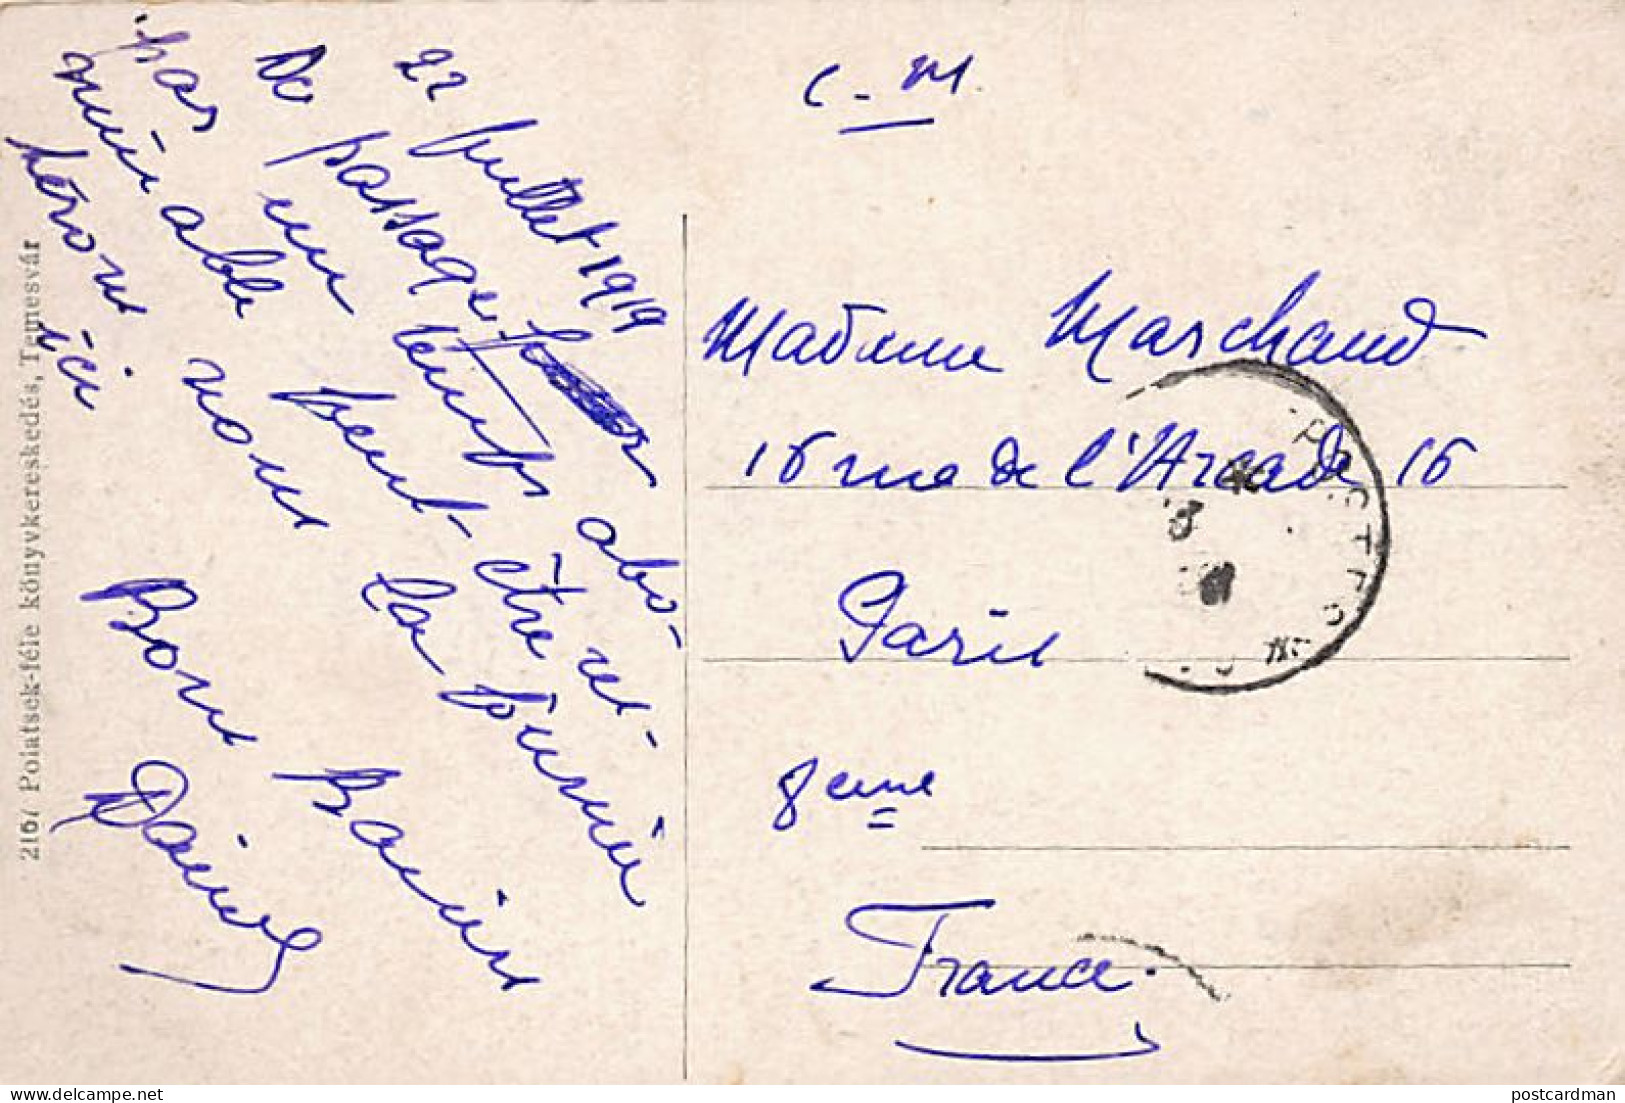 22 juillet 1919
De passage
par un temps abo-
minable peut-être ré-
nous la
ici
Bons Baisers
C. M.
Madame Marchand
16 rue de l'Arcade 16
Paris
8eme
France
2167 Polatsek-féle könyvkereskedés, Temesvár
delcampe.net
postcardman